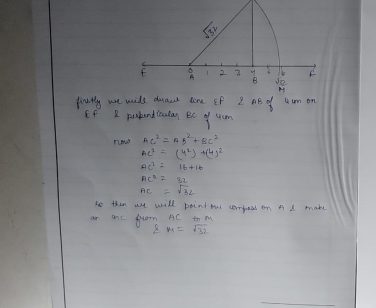 √32
E O 1 2 3 4 5 6 F
A B √32
M
firstly we will draw line EF & AB of 4cm on
EF & perpendicular BC of 4cm
now AC² = AB² + BC²
AC² = (4²) + (4)²
AC² = 16 + 16
AC² = 32
AC = √32
so then we will point our compass on A & make
an arc from AC to M
& M = √32